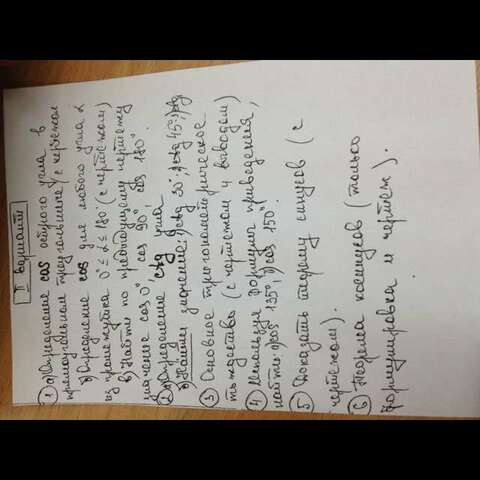 II вариант
① а) Определение cos острого угла в
прямоугольном треугольнике (с чертежом
б) Определение cos для любого угла α
из промежутка 0° ≤ α ≤ 180° (с чертежом)
в) Найти по предыдущему чертежу
значение cos 0°, cos 90°, cos 180°.
② а) Определение ctg угла
б) Найти значение: ctg 30°; ctg 45°;
③ Основное тригонометрическое
тождество (с чертежом и выводом)
④ Используя формулы приведения,
найти: а) cos 135°; б) cos 150°.
⑤ Доказать теорему синусов (с
чертежом).
⑥ Теорема косинусов (только
формулировка и чертеж).